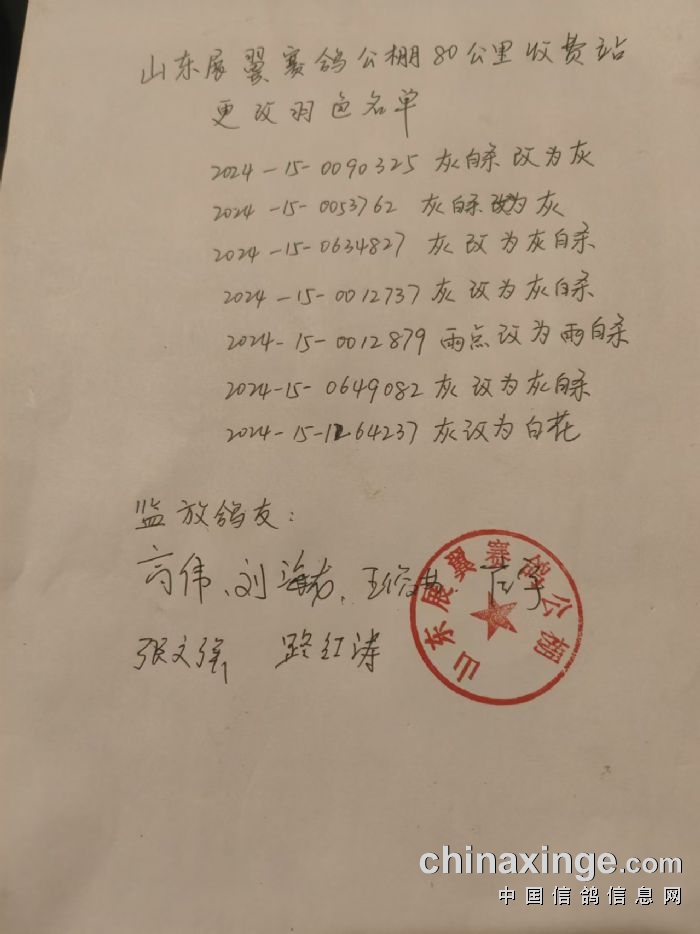 山东展翼赛鸽公棚80公里收费站
更改羽色名单
2024-15-0090325 灰白条改为灰
2024-15-0053762 灰白条改为灰
2024-15-0634827 灰改为灰白条
2024-15-0012737 灰改为灰白条
2024-15-0012879 雨点改为雨白条
2024-15-0649082 灰改为灰白条
2024-15-1264237 灰改为白花
监放鸽友：
高伟、刘海、王
张文强 路红涛
山东展翼赛鸽公棚
chinaxinge.com
中国信鸽信息网